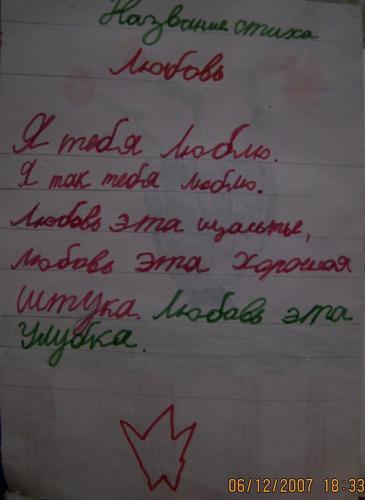 Название стиха
Любовь
Я тебя люблю.
Я так тебя люблю.
Любовь эта щастье,
любовь эта хорошая
штука. Любовь эта
улубка.
06/12/2007 18:33